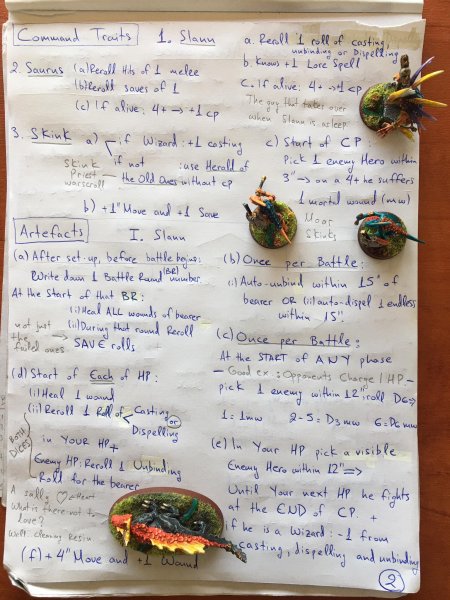 Command Traits
1. Slann
a. Reroll 1 roll of casting,
unbinding or Dispelling
b. Knows +1 Lore Spell
c. If alive: 4+ → +1 cp
The guy that takes over
when Slann is asleep
2. Saurus (a) Reroll Hits of 1 melee
(b) Reroll saves of 1
(c) If alive: 4+ → +1 cp
3. Skink a) if Wizard: +1 casting
if not : use Herald of
the Old Ones without cp
Skink
Priest
warscroll
b) +1" Move and +1 Save
c) Start of CP:
Pick 1 enemy Hero within
3" → on a 4+ he suffers
1 mortal wound (mw)
Moar
Skinks
Artefacts
I. Slann
(a) After set-up, before battle begins:
Write down 1 Battle Round (BR) number
At the Start of that BR:
(i) Heal ALL wounds of bearer
(ii) During that round Reroll
SAVE rolls
not just
the
failed ones
(b) Once per Battle:
(i) Auto-unbind within 15" of
bearer OR (ii) auto-dispel 1 endless
within 15"
(c) Once per Battle:
At the START of ANY phase
- Good ex.: Opponents Charge / HP -
pick 1 enemy within 12": roll D6 ⇒
1 = 1mw 2-5 = D3mw 6 = D6mw
(d) Start of Each of HP:
(i) Heal 1 wound
(ii) Reroll 1 Roll of Casting
or
Dispelling
in YOUR HP +
Enemy HP: Reroll 1 Unbinding
Roll for the bearer
BOTH
DICES
A sally ♡ a Heart
What is there not to
love?
Well.. cleaning Resin
(e) In Your HP pick a visible
Enemy Hero within 12" ⇒
Until Your next HP he fights
at the END of CP. +
if he is a Wizard: -1 from
casting, dispelling and unbinding
(f) +4" Move and +1 Wound
2